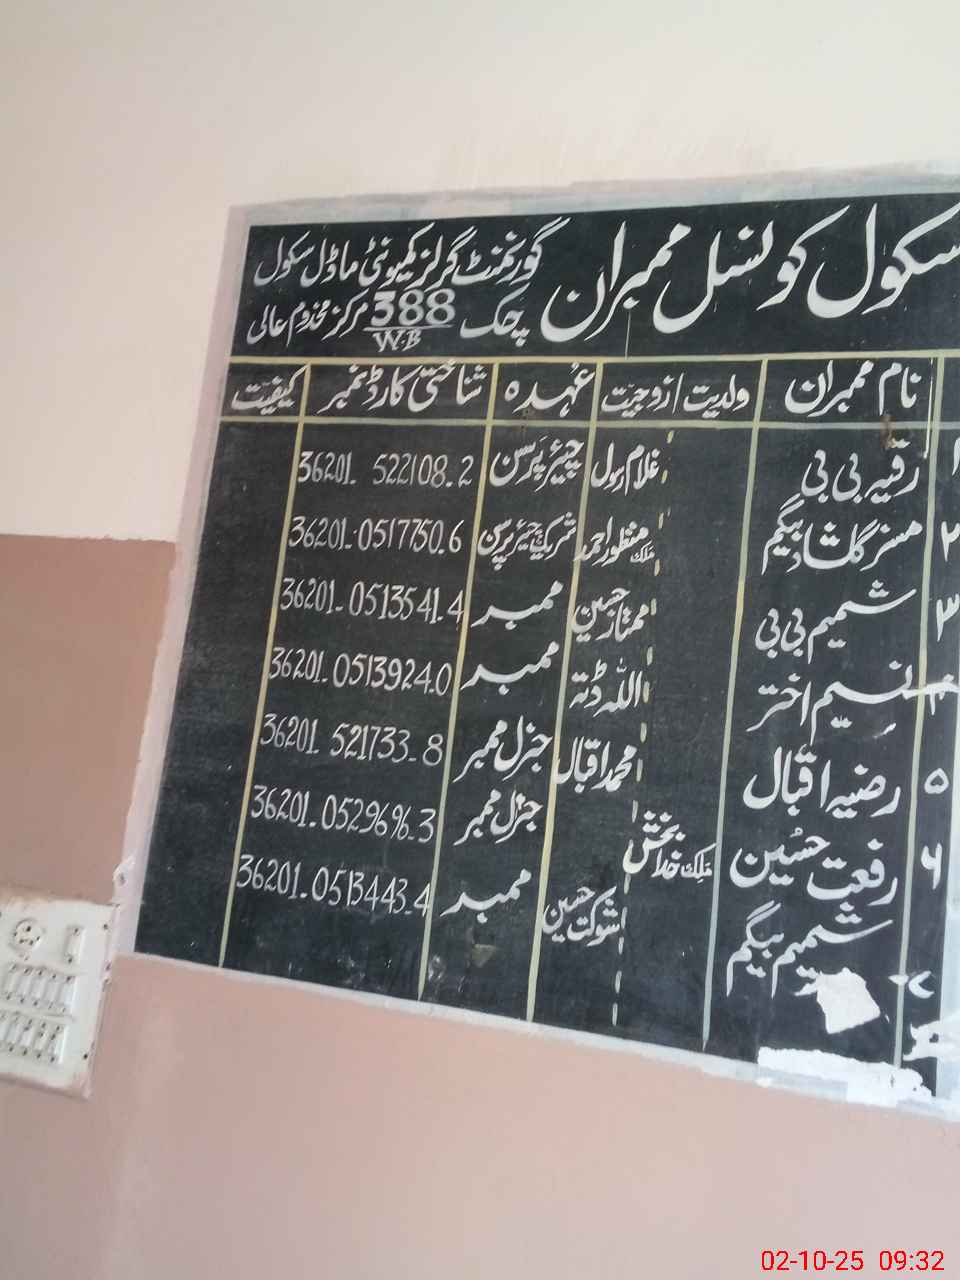 سکول کونسل ممبران
گورنمنٹ گرلز کمیونٹی ماڈل سکول
چک 388 مرکز مخدوم عالی
W.B
نام ممبران ولدیت/زوجیت عُہدہ شناختی کارڈ نمبر کیفیت
۱ رقیہ بی بی غلام رسول چیئرپَرسن 36201. 522108.2
۲ مسز گلشاد بیگم ملک منظور احمد شریک چیئرپرسن 36201.0517750.6
۳ شمیم بی بی ممتاز حسین ممبر 36201.0513541.4
۴ نسیم اختر اللہ ڈتہ ممبر 36201.0513924.0
۵ رضیہ اقبال محمد اقبال جنرل ممبر 36201. 521733.8
۶ رفعت حسین ملک خدا بخش جنرل ممبر 36201.0529696.3
۷ شمیم بیگم شوکت حسین ممبر 36201.0513443.4
02-10-25 09:32